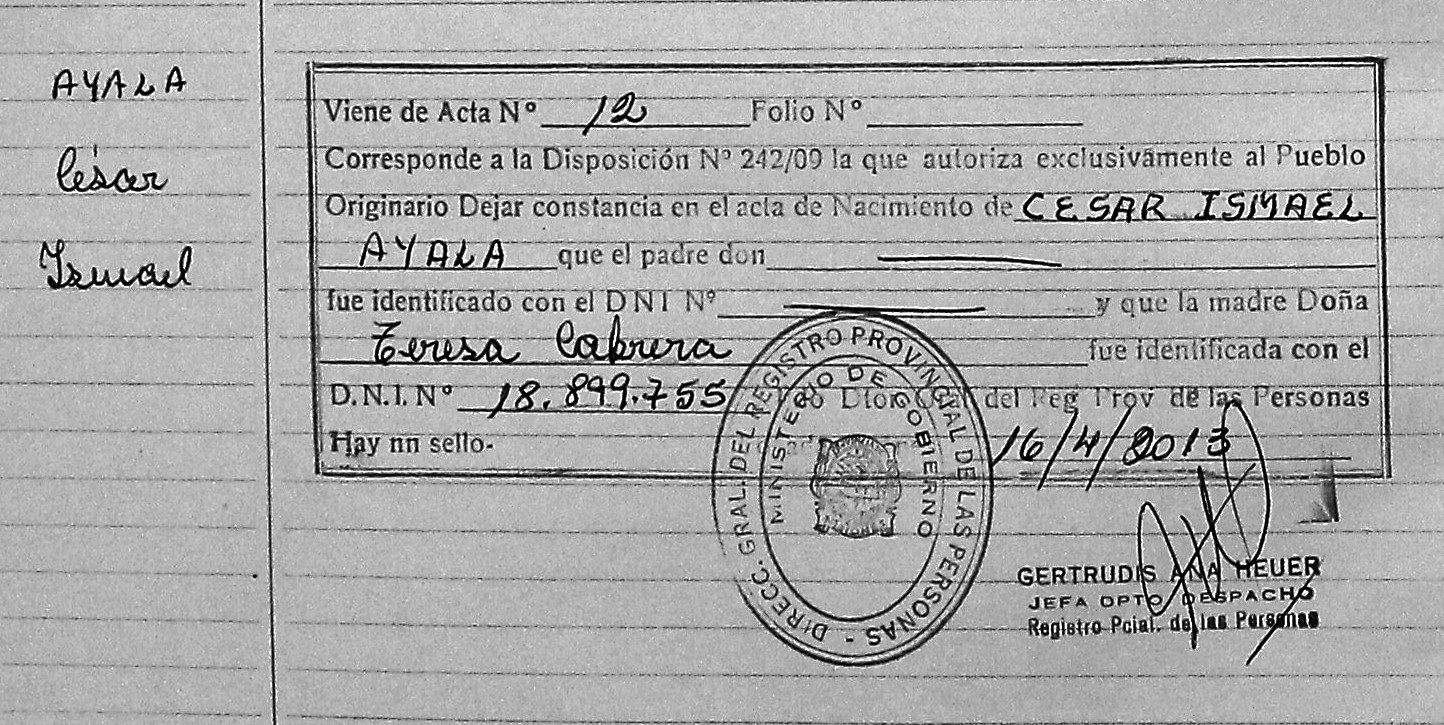 AYALA
César
Ismael
Viene de Acta Nº 12 Folio Nº
Corresponde a la Disposición Nº 242/09 la que autoriza exclusivamente al Pueblo
Originario Dejar constancia en el acta de Nacimiento de CESAR ISMAEL
AYALA que el padre don
fue identificado con el DNI Nº y que la madre Doña
Teresa Cabrera fue identificada con el
D.N.I. Nº 18.899.755 del Reg Prov de las Personas
Hay nn sello- 16/4/2013
DIRECC. GRAL. DEL REGISTRO PROVINCIAL DE LAS PERSONAS -
MINISTERIO DE GOBIERNO
GERTRUDIS ANA HEUER
JEFA DPTO DESPACHO
Registro Pcial. de las Personas